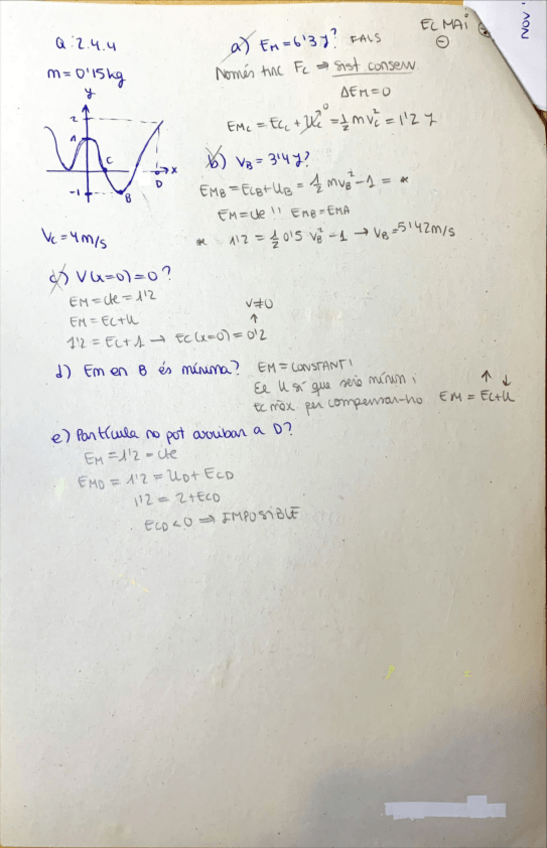 Q: 2.4.4
m = 0'15 kg
y
2
A
C
x
D
-1
B
Vc = 4 m/s
EC MAI ⊖
NOV
a) EM = 6'3 J? FALS
Només tinc Fc ⇒ sist conserv
ΔEM = 0
EMc = Ecc + Uc⁰ = 1/2 m Vc² = 1'2 J
b) VB = 3'4 J?
EMB = ECB + UB = 1/2 m VB² - 1 = *
EM = cte !! EMB = EMA
* 1'2 = 1/2 0'5 VB² - 1 → VB = 5'42 m/s
c) V(x=0) = 0?
EM = cte = 1'2
EM = Ec + U
V≠0
↑
1'2 = Ec + 1 → Ec(x=0) = 0'2
d) Em en B és mínima? EM = CONSTANT!
U sí que serà mínim i
Ec màx per compensar-ho EM = Ec + U
↑ ↓
e) Partícula no pot arribar a D?
EM = 1'2 = cte
EMD = 1'2 = UD + ECD
1'2 = 2 + ECD
ECD < 0 ⇒ IMPOSIBLE